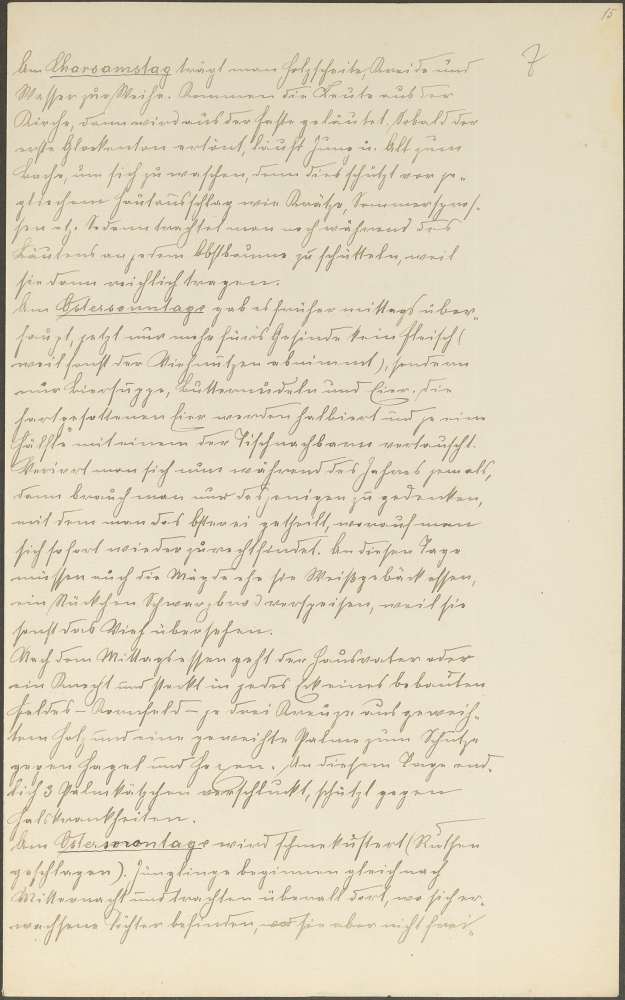 15
7
Am Charsamstag trägt man Holzscheite, Kreide und
Wasser zur Weihe. Kommen die Leute aus der
Kirche, dann wird aus der Feste geläutet. Sobald der
erste Glockenton ertönt, läuft Jung u. Alt zum
Bache, um sich zu waschen, denn dies schützt vor je-
glichem Hautausschlag wie Krätze, Sommerspros-
sen etz. Sodann trachtet man noch während des
Läutens an jedem Obstbaume zu schütteln, weil
sie dann reichlich tragen.
Am Ostersonntage gab es früher mittags über-
haupt, jetzt nur mehr fürs Gesinde kein Fleisch (
weil sonst der Viehnutzen abnimmt), sondern
nur Biersuppe, Butternudeln und Eier. Die
hartgesottenen Eier werden halbiert und je eine
Hälfte mit einem der Tischnachbaren vertauscht.
Verirrt man sich nun während des Jahres jemals,
dann brauch man nur desjenigen zu gedenken,
mit dem man das Osterei getheilt, worauf man
sich sofort wieder zurechtfindet. An diesem Tage
müssen auch die Mägde ehe sie Weißgebäck essen,
ein Stückchen Schwarzbrod verspeisen, weil sie
sonst das Vieh übersehen.
Nach dem Mittagsessen geht der Hausvater oder
ein Knecht und steckt in jedes Eck eines bebauten
Feldes – Kornfeld – je drei Kreuze aus geweih-
tem Holz und eine geweihte Palme zum Schutze
gegen Hagel und Hexen. An diesem Tage end-
lich 3 Palmkätzchen verschluckt, schützt gegen
Halskrankheiten.
Am Ostermontage wird schmekustert (Ruthen
geschlagen). Jünglinge beginnen gleich nach
Mitternacht und trachten überall dort, wo sich er-
wachsene Töchter befinden, wo sie aber nicht frei-